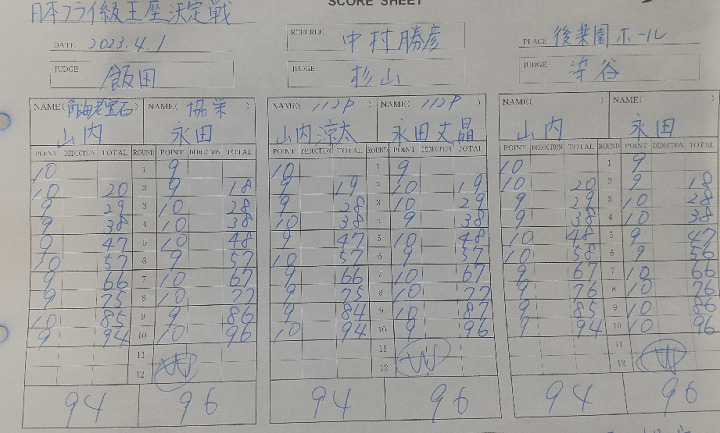 SCORE SHEET
日本フライ級王座決定戦
DATE 2023.4.1 REFEREE 中村勝彦 PLACE 後楽園ホール
JUDGE 飯田 JUDGE 杉山 JUDGE 染谷
NAME(角海老宝石) NAME( 協栄 ) NAME( 112P ) NAME( 112P ) NAME( ) NAME( )
山内 永田 山内涼太 永田丈晶 山内 永田
POINT DEDUCTION TOTAL ROUND POINT DEDUCTION TOTAL POINT DEDUCTION TOTAL ROUND POINT DEDUCTION TOTAL POINT DEDUCTION TOTAL ROUND POINT DEDUCTION TOTAL
10 1 9 10 1 9 10 1 9
10 20 2 9 18 9 19 2 10 19 10 20 2 9 18
9 29 3 10 28 9 28 3 10 29 9 29 3 10 28
9 38 4 10 38 10 38 4 9 38 9 38 4 10 38
9 47 5 10 48 9 47 5 10 48 10 48 5 9 47
10 57 6 9 57 10 57 6 9 57 10 58 6 9 56
9 66 7 10 67 9 66 7 10 67 9 67 7 10 66
9 75 8 10 77 9 75 8 10 77 9 76 8 10 76
10 85 9 9 86 9 84 9 10 87 9 85 9 10 86
9 94 10 10 96 10 94 10 9 96 9 94 10 10 96
11 11 11
12 W 12 W 12 W
94 96 94 96 94 96